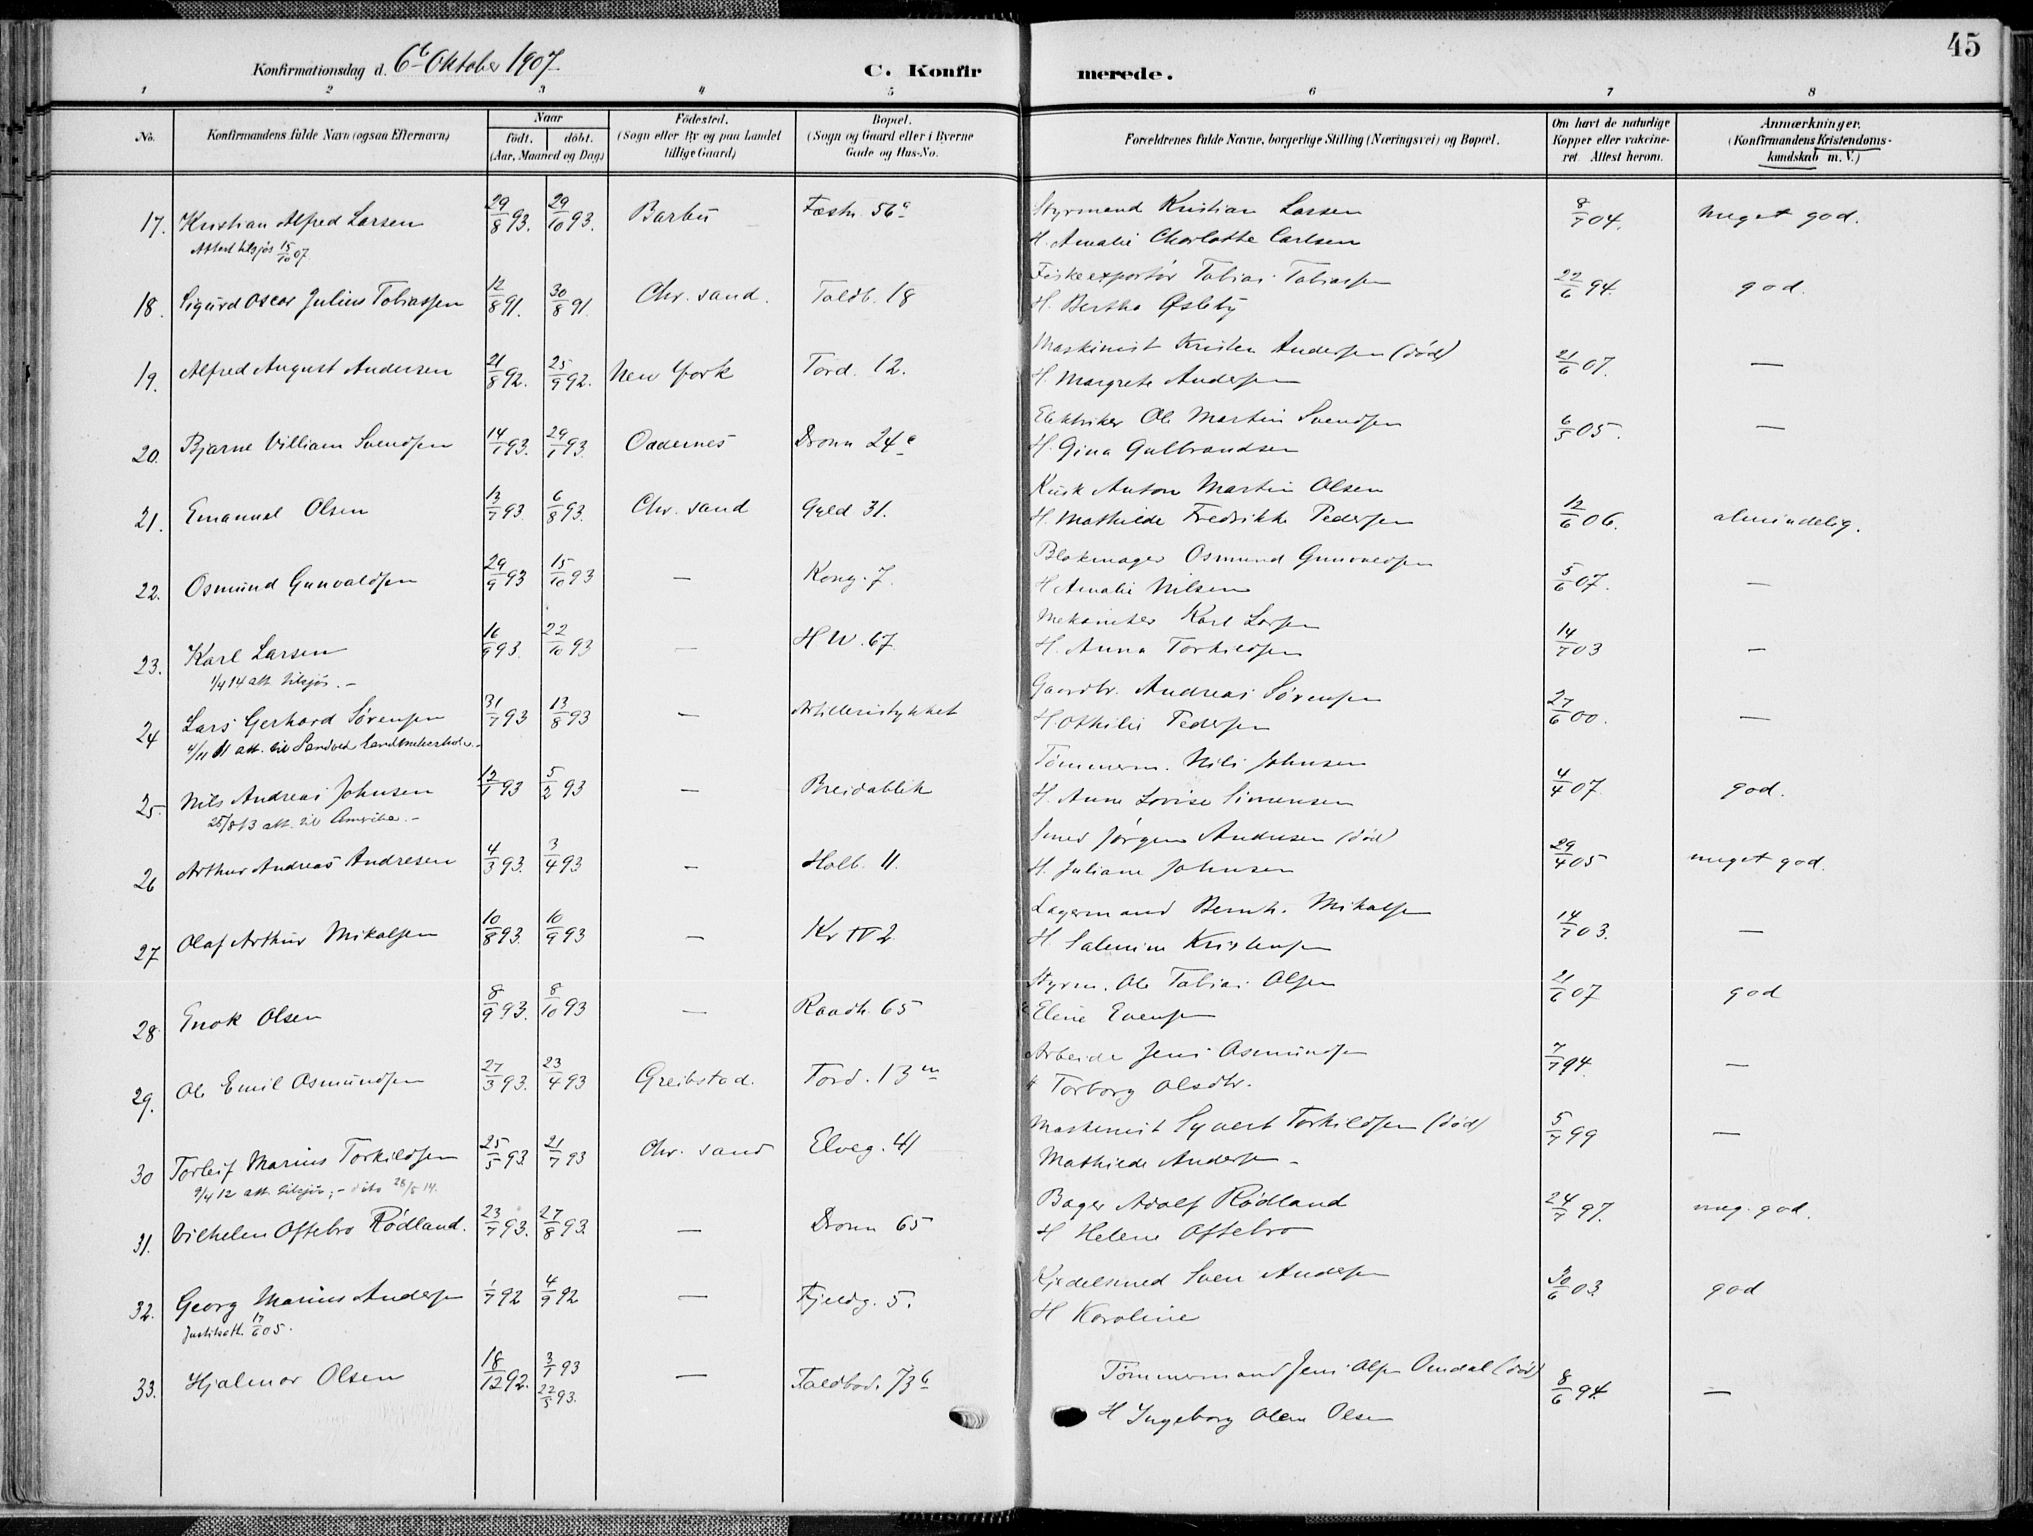 45
Konfirmationsdag d. 6te Oktober 1907
C. Konfirmerede.
1 2 3 4 5 6 7 8
No.
Konfirmandens fulde Navn (ogsaa Efternavn)
Naar
födt. döbt.
(Aar, Maaned og Dag)
Födested.
(Sogn eller By og paa Landet tillige Gaard)
Bopæl.
(Sogn og Gaard eller i Byerne Gade og Hus-No.
Forældrenes fulde Navne, borgerlige Stilling (Næringsvei) og Bopæl.
Om havt de naturlige Kopper eller vakcineret. Attest herom.
Anmærkninger.
(Konfirmandens Kristendomskundskab m. V.)
17. Kristian Alfred Larsen 29/8 93. 29/10 93. Barbu Fæstn. 56a Styrmand Kristian Larsen 8/7 04. meget god.
Attest tilsjøs 15/10 07. H. Amalie Charlotte Carlsen
18. Sigurd Oscar Julius Tobiassen 12/8 91. 30/8 91. Chr. sand. Toldb. 18 Fiskeexportør Tobias Tobiassen 22/6 94. god.
H. Bertha Øsleby
19. Alfred August Andersen 21/8 92. 25/9 92. New York Tord. 12. Maskinist Kristen Andersen (død) 21/6 07. —
H. Margrete Andersen
20. Bjarne Villiam Svendsen 14/1 93. 29/1 93. Oddernes Dronn 24c Elektriker Ole Martin Svendsen 6/5 05. —
H. Gina Gulbrandsen
21. Emanuel Olsen 13/7 93. 6/8 93. Chr. sand Gyld 31. Kusk Anton Martin Olsen 12/6 06. almindelig.
H. Mathilde Fredrikke Pedersen
22. Osmund Gunvaldsen 29/9 93 15/10 93 — Kong. 7. Blokmager Osmund Gunvaldsen 5/6 07. —
H. Amalie Nilsen
23. Karl Larsen 16/9 93. 22/10 93 — H W. 67 Mekaniker Karl Larsen 14/7 03 —
1/4 14 att. tilsjøs. — H. Anna Torkildsen
24 Lars Gerhard Sørensen 31/7 93 13/8 93 — Artilleristykket Gaardbr. Andreas Sørensen 27/6 00. —
4/11 11 att. til Landbrukerskole. H. Othilie Pedersen
25. Nils Andreas Johnsen 12/1 93 5/2 93 — Breidablik Tømmerm. Nils Johnsen 4/4 07. god.
25/8 13 att. til Amerika. — H. Anne Lovise Simensen
26 Arthur Andreas Andresen 4/3 93. 3/4 93 — Holb. 11. Smed Jørgen Andresen (død) 29/4 05 meget god.
H. Juliane Johnsen
27 Olaf Arthur Mikalsen 10/8 93. 10/9 93 — Kr IV 2. Lagermand Bernh. Mikalsen 14/7 03. —
H. Salmine Kristensen
28. Enok Olsen 8/9 93. 8/10 93 — Raadh. 65 Styrm. Ole Tobias Olsen 21/6 07 god
Eline Evensen
29. Ole Emil Osmundsen 27/3 93. 23/4 93 Greibstad. Tord. 13 Arbeider Jens Osmundsen 7/7 94. —
Torborg Olsdtr.
30 Torleif Marius Torkildsen 25/5 93 21/7 93 Chr. sand Elveg. 41 Maskinist Syvert Torkildsen (død) 5/7 99 —
9/4 12 att. tilsjøs; — dito 28/5 14. Mathilde Andersen —
31. Vilhelm Oftebro Rødland. 23/7 93. 27/8 93. — Dronn 65 Bager Adolf Rødland 24/7 97. meg. god.
H Helene Oftebro
32. Georg Marius Andersen 1/7 92 4/9 92 — Fjeldg. 5. Kjedelsmed Sven Andersen 30/6 03. god
17/6 05. H Karoline
33. Hjalmar Olsen 18/12 92. 3/1 93 22/5 93. — Toldbod. 73b Tømmermand Jens Olsen Omdal (død) 8/6 94. —
H Ingeborg Olsen